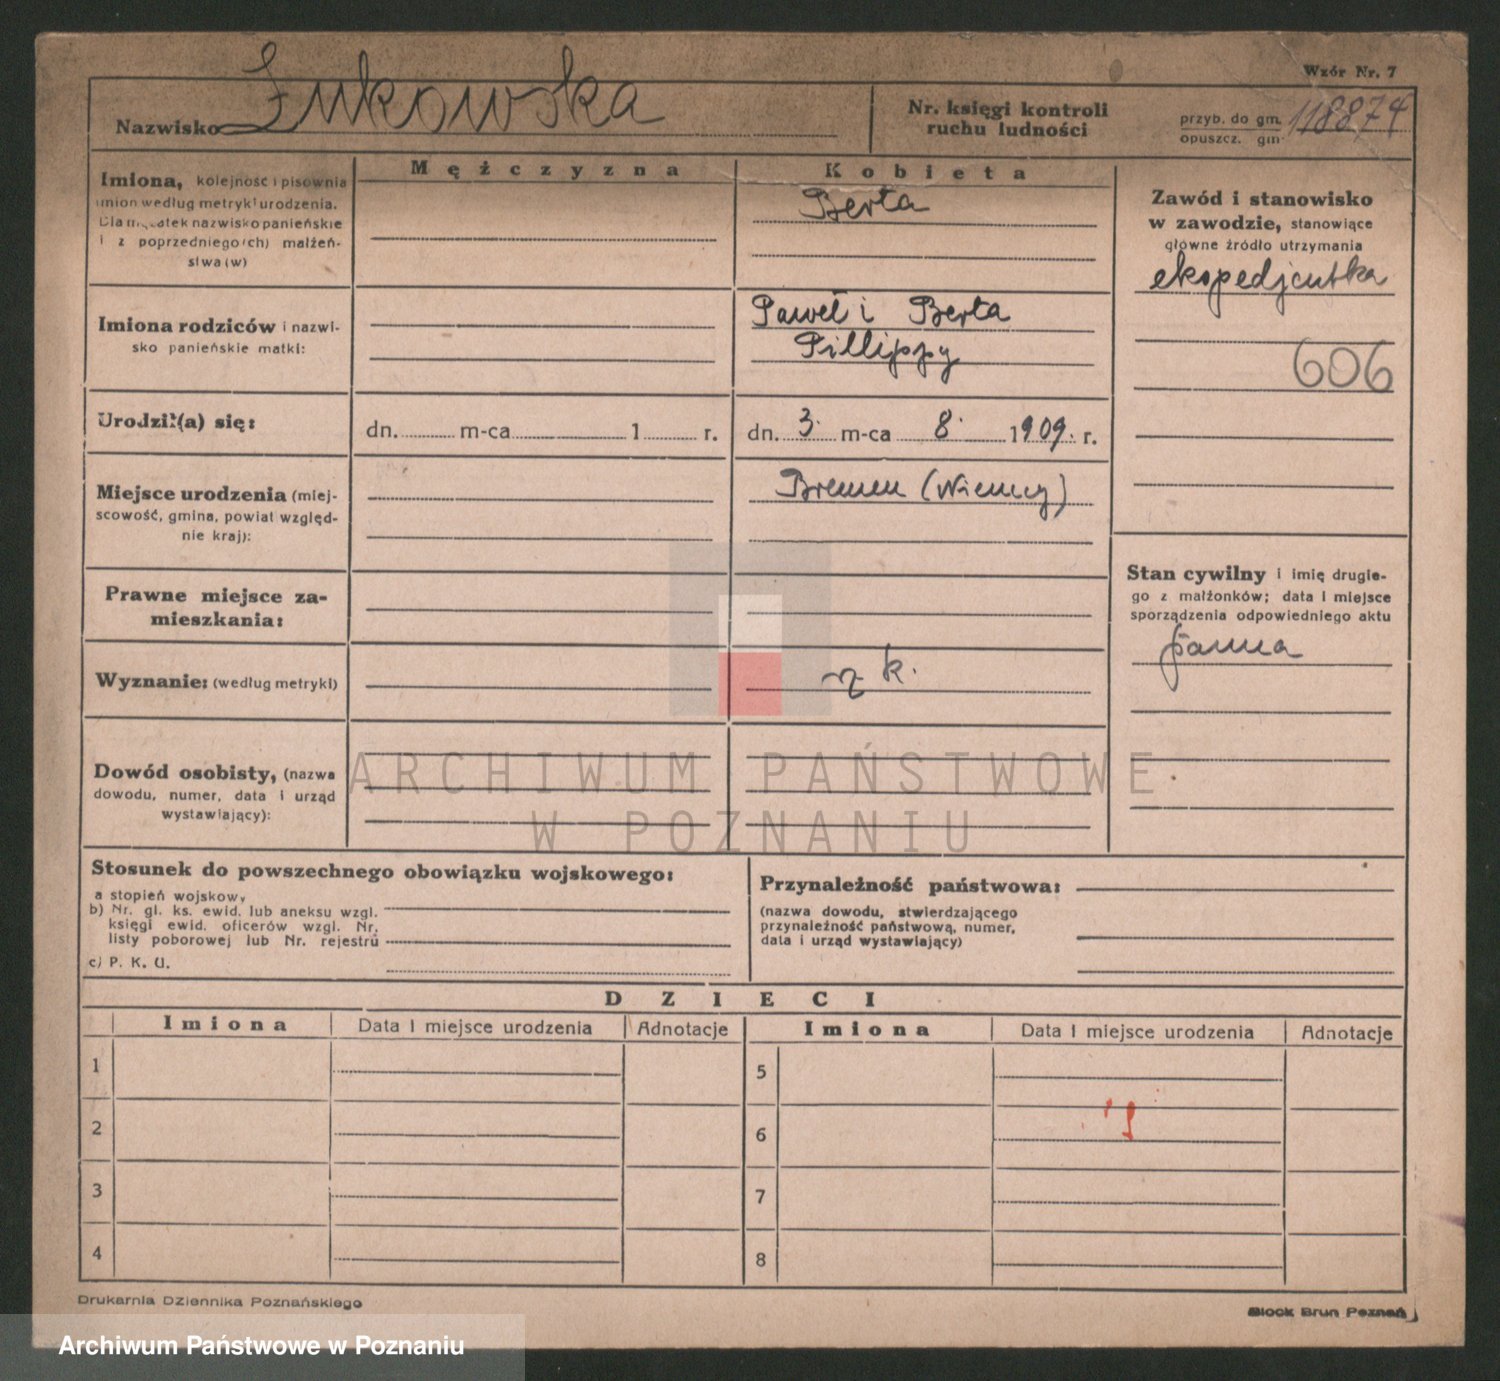 Wzór Nr. 7
Nazwisko Żukowska
Nr. księgi kontroli
ruchu ludności
przyb. do gm. 118874
opuszcz. gm.
Mężczyzna
Kobieta
Imiona, kolejność i pisownia
imion według metryki urodzenia.
Dla mężatek nazwisko panieńskie
i z poprzedniego(ch) małżeń-
stwa(w)
Berta
Zawód i stanowisko
w zawodzie, stanowiące
główne źródło utrzymania
ekspedjentka
606
Imiona rodziców i nazwi-
sko panieńskie matki:
Paweł i Berta
Pillippy
Urodził(a) się:
dn. m-ca 1 r.
dn. 3. m-ca 8. 1909. r.
Miejsce urodzenia (miej-
scowość, gmina, powiat względ-
nie kraj):
Bremen (Niemcy)
Prawne miejsce za-
mieszkania:
Stan cywilny i imię drugie-
go z małżonków; data i miejsce
sporządzenia odpowiedniego aktu
panna
Wyznanie: (według metryki)
rz k.
Dowód osobisty, (nazwa
dowodu, numer, data i urząd
wystawiający):
ARCHIWUM PAŃSTWOWE
W POZNANIU
Stosunek do powszechnego obowiązku wojskowego:
a stopień wojskowy
b) Nr. gl. ks. ewid. lub aneksu wzgl.
księgi ewid. oficerów wzgl. Nr.
listy poborowej lub Nr. rejestru
c) P. K. U.
Przynależność państwowa:
(nazwa dowodu, stwierdzającego
przynależność państwową, numer,
data i urząd wystawiający)
DZIECI
Imiona Data i miejsce urodzenia Adnotacje Imiona Data i miejsce urodzenia Adnotacje
1 5
2 6
3 7
4 8
Drukarnia Dziennika Poznańskiego
Block Brun Poznań
Archiwum Państwowe w Poznaniu